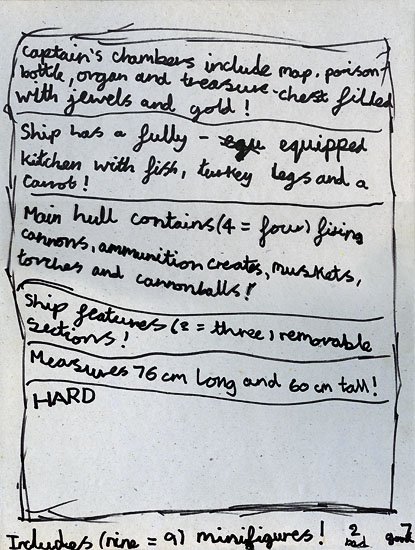 Captain's chambers include map, poison-
bottle, organ and treasure-chest filled
with jewels and gold!
Ship has a fully - equipped
kitchen with fish, turkey legs and a
Carrot!
Main hull contains (4 = four) firing
cannons, ammunition creates, muskets,
torches and cannonballs!
Ship features (2 = three) removable
sections!
Measures 76 cm long and 60 cm tall!
HARD
Includes (nine = 9) minifigures! 2 7
bad good